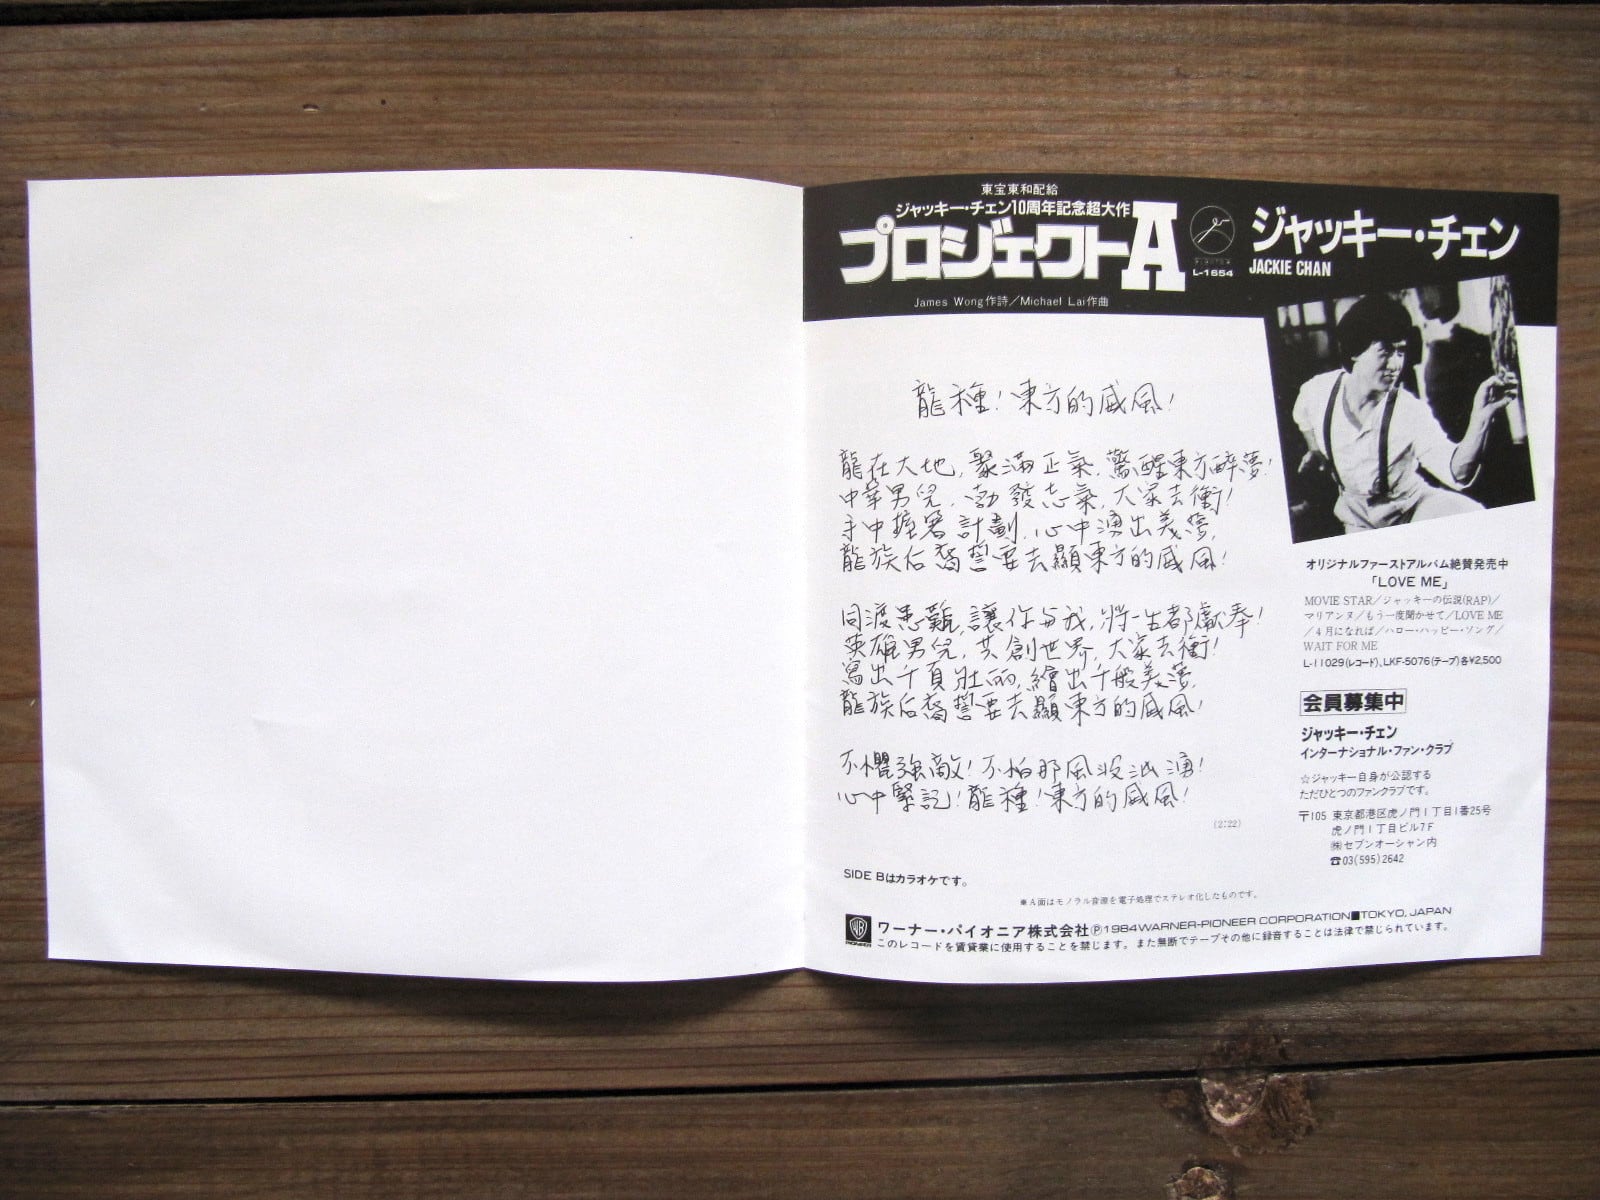 東宝東和配給
ジャッキー・チェン10周年記念超大作
プロジェクトA
L-1654
ジャッキー・チェン
JACKIE CHAN
James Wong作詩／Michael Lai作曲
龍種！東方的威風！
龍在大地，聚滿正氣，驚醒東方醉夢！
中華男兒，勃發志氣，大家去衝！
手中握着計劃，心中湧出美夢，
龍族后裔誓要去顯東方的威風！
同渡患難，讓你与我，將一生都獻奉！
英雄男兒，共創世界，大家去衝！
寫出千頁壯丽，繪出千般美夢，
龍族后裔誓要去顯東方的威風！
不懼強敵！不怕那風波汹湧！
心中緊記！龍種！東方的威風！
(2:22)
SIDE Bはカラオケです。
※A面はモノラル音源を電子処理でステレオ化したものです。
オリジナルファーストアルバム絶賛発売中
「LOVE ME」
MOVIE STAR／ジャッキーの伝説(RAP)／
マリアンヌ／もう一度聞かせて／LOVE ME
／4月になれば／ハロー・ハッピー・ソング／
WAIT FOR ME
L-11029(レコード)、LKF-5076(テープ)各¥2,500
会員募集中
ジャッキー・チェン
インターナショナル・ファン・クラブ
☆ジャッキー自身が公認する
ただひとつのファンクラブです。
〒105 東京都港区虎ノ門1丁目1番25号
虎ノ門1丁目ビル7F
㈱セブンオーシャン内
☎03(595)2642
WB
PIONEER
ワーナー・パイオニア株式会社Ⓟ1984 WARNER-PIONEER CORPORATION■TOKYO, JAPAN
このレコードを賃貸業に使用することを禁じます。また無断でテープその他に録音することは法律で禁じられています。